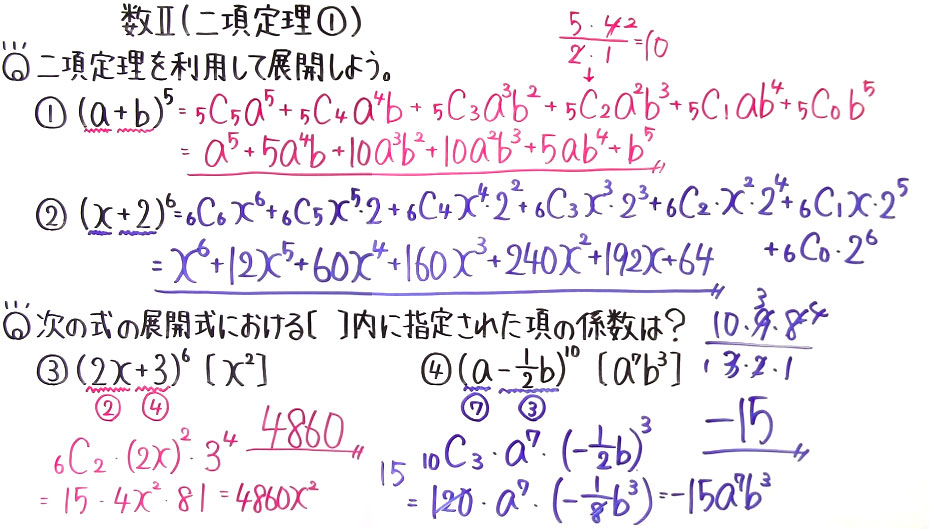 数Ⅱ(二項定理①)
5・4²/2・1=10
↓
二項定理を利用して展開しよう。
① (a+b)⁵=₅C₅a⁵+₅C₄a⁴b+₅C₃a³b²+₅C₂a²b³+₅C₁ab⁴+₅C₀b⁵
=a⁵+5a⁴b+10a³b²+10a²b³+5ab⁴+b⁵
② (x+2)⁶=₆C₆x⁶+₆C₅x⁵・2+₆C₄x⁴・2²+₆C₃x³・2³+₆C₂・x²・2⁴+₆C₁x・2⁵
+₆C₀・2⁶
=x⁶+12x⁵+60x⁴+160x³+240x²+192x+64
次の式の展開式における[ ]内に指定された項の係数は?
③ (2x+3)⁶ [x²]
② ④
4860
₆C₂・(2x)²・3⁴
=15・4x²・81=4860x²
④ (a-1/2b)¹⁰ [a⁷b³]
⑦ ③
10・9・8/3・2・1
3 4
1
-15
₁₀C₃・a⁷・(-1/2b)³
15
=120・a⁷・(-1/8b³)=-15a⁷b³